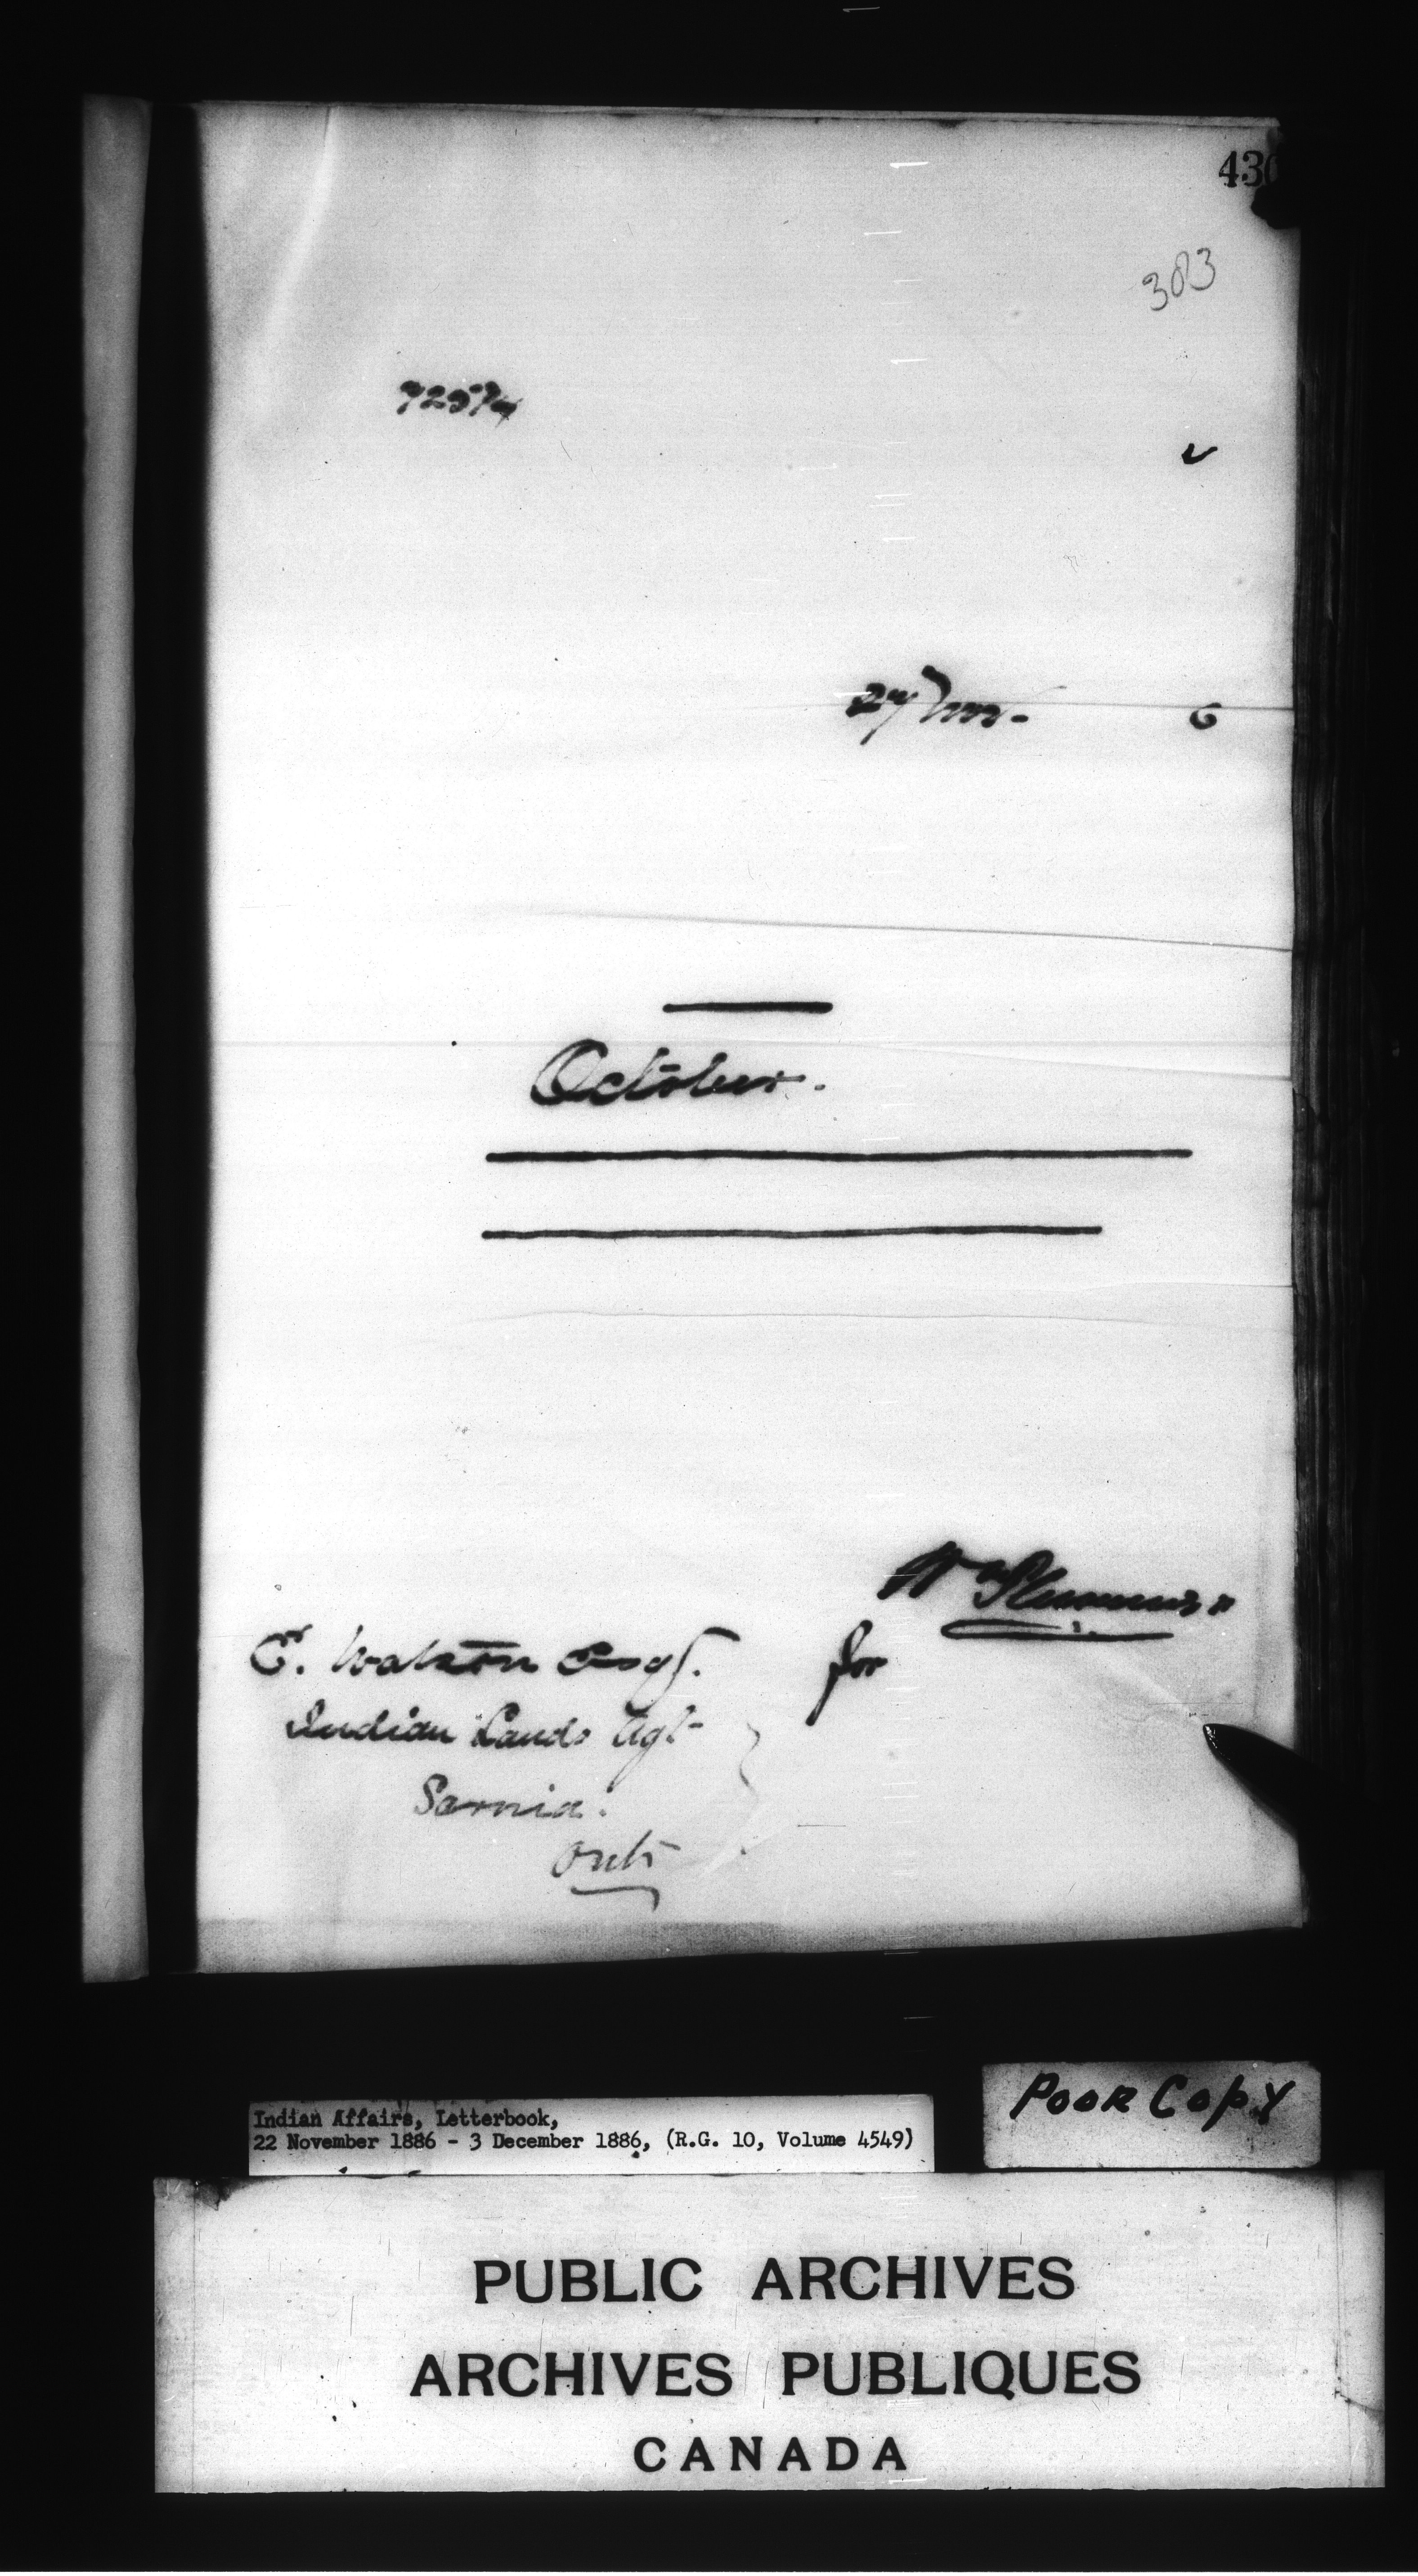 430
383
72574
27 Nov. 6
October.
Wm Plummer
for
E. Watson Esq.
Indian Lands Agt
Sarnia.
Ont
Poor Copy
Indian Affairs, Letterbook,
22 November 1886 - 3 December 1886, (R.G. 10, Volume 4549)
PUBLIC ARCHIVES
ARCHIVES PUBLIQUES
CANADA